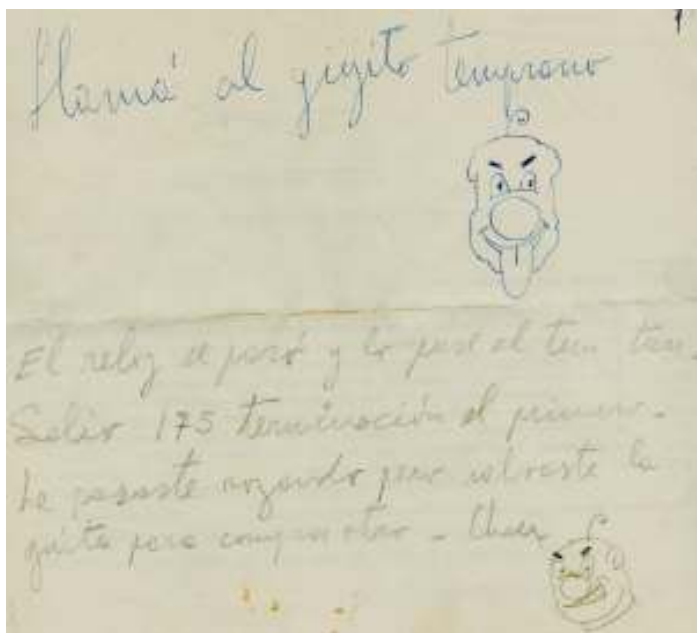 llamá al gigito temprano
El reloj se paró y lo puse al tun tun
Salió 175 terminación el primero.
Le pasaste rozando pero salvaste la
guita para comprar otro - Chau